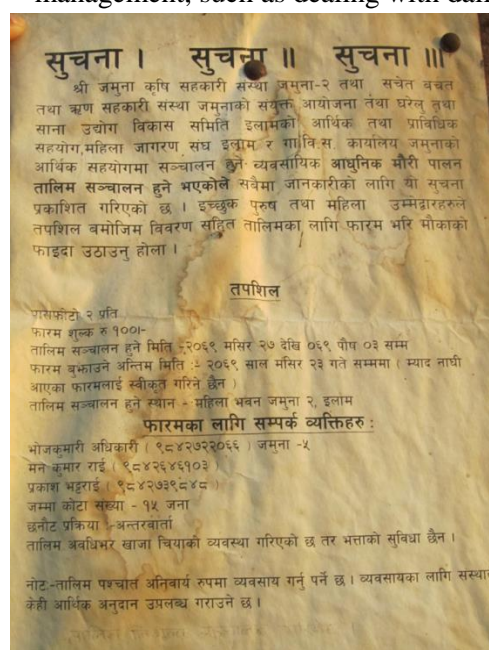 management, such as dealing with
सुचना । सुचना ॥ सुचना ॥।
श्री जमुना कृषि सहकारी संस्था जमुना-२ तथा सचेत बचत
तथा ऋण सहकारी संस्था जमुनाको संयुक्त आयोजना तथा घरेलु तथा
साना उद्योग विकास समिति इलामको आर्थिक तथा प्राविधिक
सहयोग,महिला जागरण संघ इलाम र गा.वि.स. कार्यालय जमुनाको
आर्थिक सहयोगमा सञ्चालन हुने व्यवसायिक आधुनिक मौरी पालन
तालिम सञ्चालन हुने भएकोले सबैमा जानकारीको लागि यो सुचना
प्रकाशित गरिएको छ । इच्छुक पुरुष तथा महिला उम्मेद्वारहरुले
तपशिल बमोजिम विवरण सहित तालिमका लागि फारम भरि मौकाको
फाइदा उठाउनु होला ।
तपशिल
पासफोटो २ प्रति
फारम शुल्क रु १००।-
तालिम सञ्चालन हुने मिति -२०६९ मसिर २७ देखि ०६९ पौष ०३ सम्म
फारम बुझाउने अन्तिम मिति :- २०६९ साल मसिर २३ गते सम्ममा ( म्याद नाघी
आएका फारमलाई स्वीकृत गरिने छैन )
तालिम सञ्चालन हुने स्थान - महिला भवन जमुना २, इलाम
फारमका लागि सम्पर्क व्यक्तिहरु :
भोजकुमारी अधिकारी ( ९८४२७२२०६६ ) जमुना -५
मन कुमार राई ( ९८४२६४६१०३ )
प्रकाश भट्टराई ( ९८४२७३९८४८ )
जम्मा कोटा संख्या - १५ जना
छनौट प्रक्रिया -अन्तरवार्ता
तालिम अवधिभर खाजा चियाको व्यवस्था गरिएको छ तर भत्ताको सुविधा छैन ।
नोट-तालिम पश्चात अनिवार्य रुपमा व्यवसाय गर्नु पर्ने छ । व्यवसायका लागि संस्था
केही आर्थिक अनुदान उपलब्ध गराउने छ ।